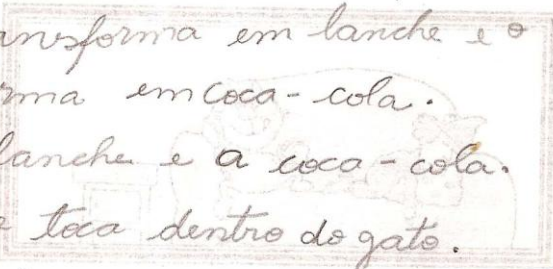 ansforma em lanche e o
rma em coca-cola.
lanche e a coca-cola.
e toca dentro do gato.